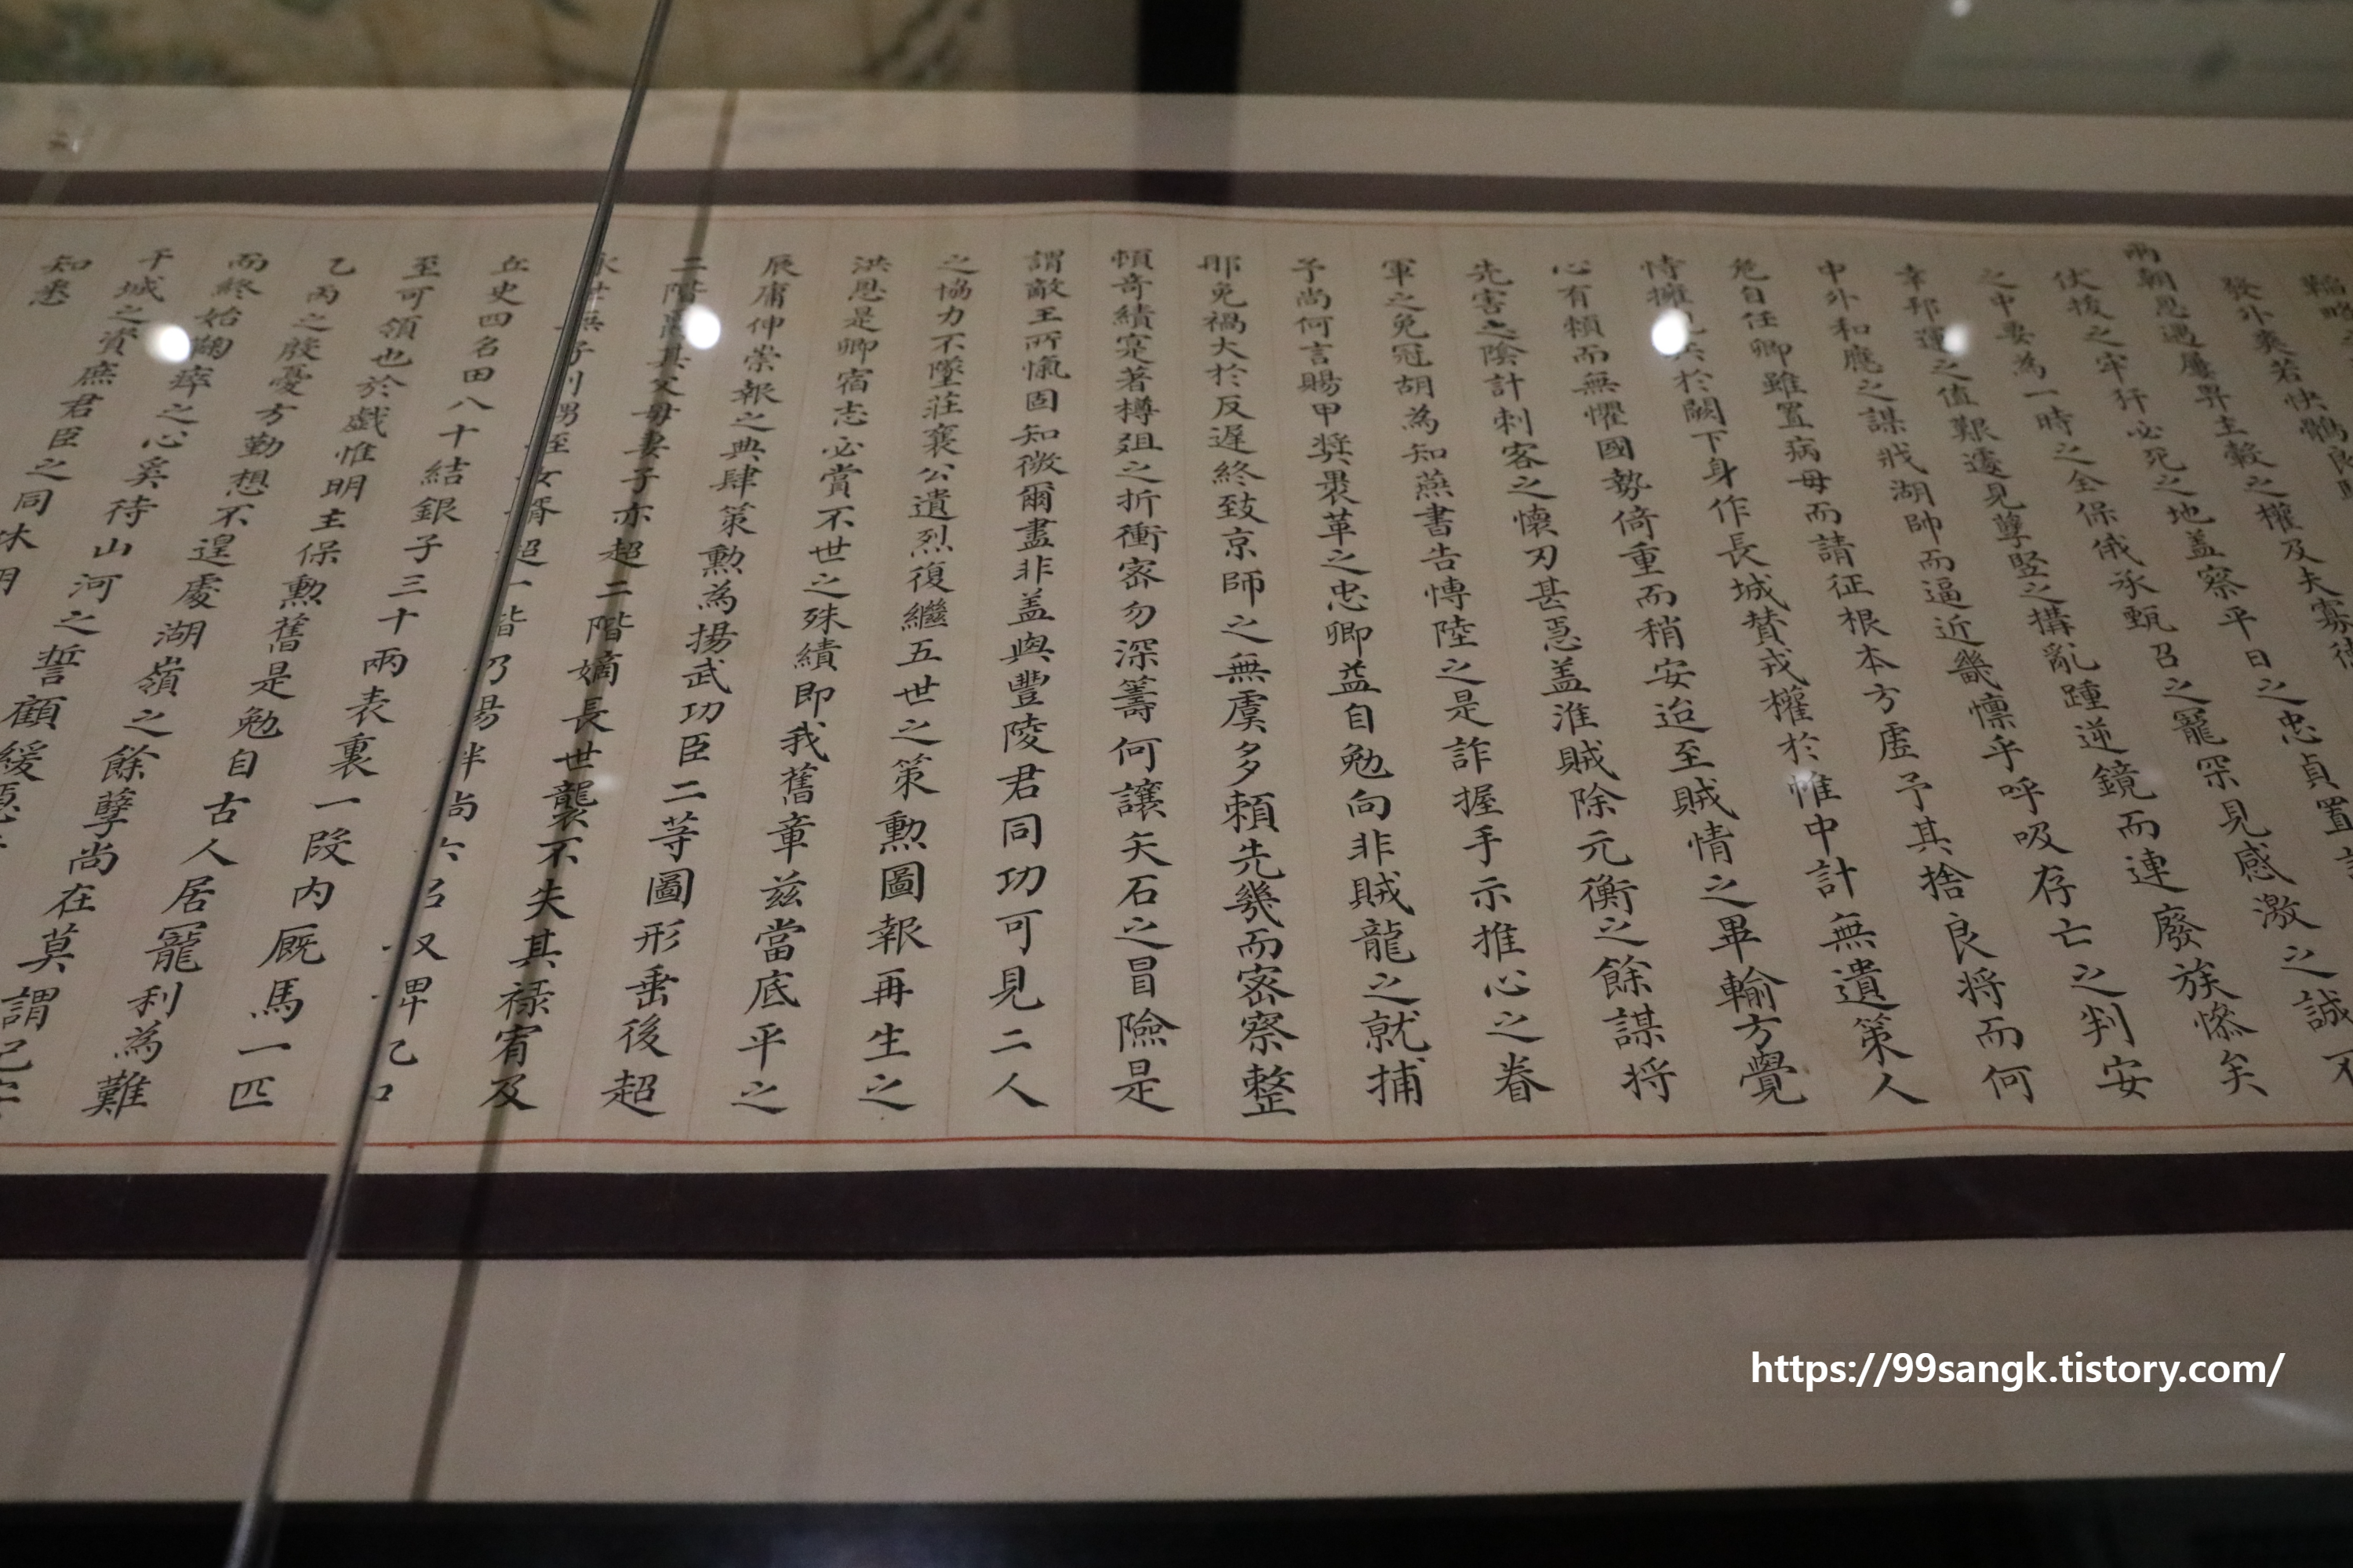 韜略之
發外奕若快鶻良馬
兩朝恩遇屢畀主轂之權及夫寡德
忠貞置
伏拔之牢犴必死之地盖察平日之
感激之誠不
之中要為一時之全保俄承甄召之寵罙見
幸邦運之值艱遽見孽竪之構亂踵逆鏡而連廢族憯矣
中外和應之謀戕湖帥而逼近畿懔乎呼吸存亡之判安
危自任卿雖置病母而請征根本方虛予其捨良將而何
恃擁 於闕下身作長城賛戎權於惟中計無遺策人
心有頼而無懼國勢倚重而稍安迨至賊情之畢輸方覺
先害之陰計刺客之懷刃甚惡盖淮賊除元衡之餘謀將
軍之免冠胡為知燕書告愽陸之是詐握手示推心之眷
予尚何言賜甲奬褁革之忠卿益自勉向非賊龍之就捕
那免禍大於反遲終致京師之無虞多頼先幾而密察整
頓奇績寔著樽俎之折衝密勿深籌何讓矢石之冒險是
謂敵王所愾固知微爾盡非盖與豐陵君同功可見二人
之協力不墜莊襄公遺烈復繼五世之策勲圖報再生之
洪恩是卿宿志必賞不世之殊績即我舊章兹當底平之
辰庸伸崇報之典肆策勲為揚武功臣二等圖形垂後超
二階 其父母妻子亦超二階嫡長世襲不失其禄宥及
永世無子則甥姪女壻超一階乃賜伴尚六名又畀乙口
丘史四名田八十結銀子三十兩表裏一段内厩馬一匹
至可領也於戯惟明主保勲舊是勉自古人居寵利為難
乙丙之殷憂方勤想不遑處湖嶺之餘孽尚在莫謂已安
而終始鞠瘁之心奚待山河之誓顧緩惡
干城之資庶君臣之同休明
知悉
https://99sangk.tistory.com/